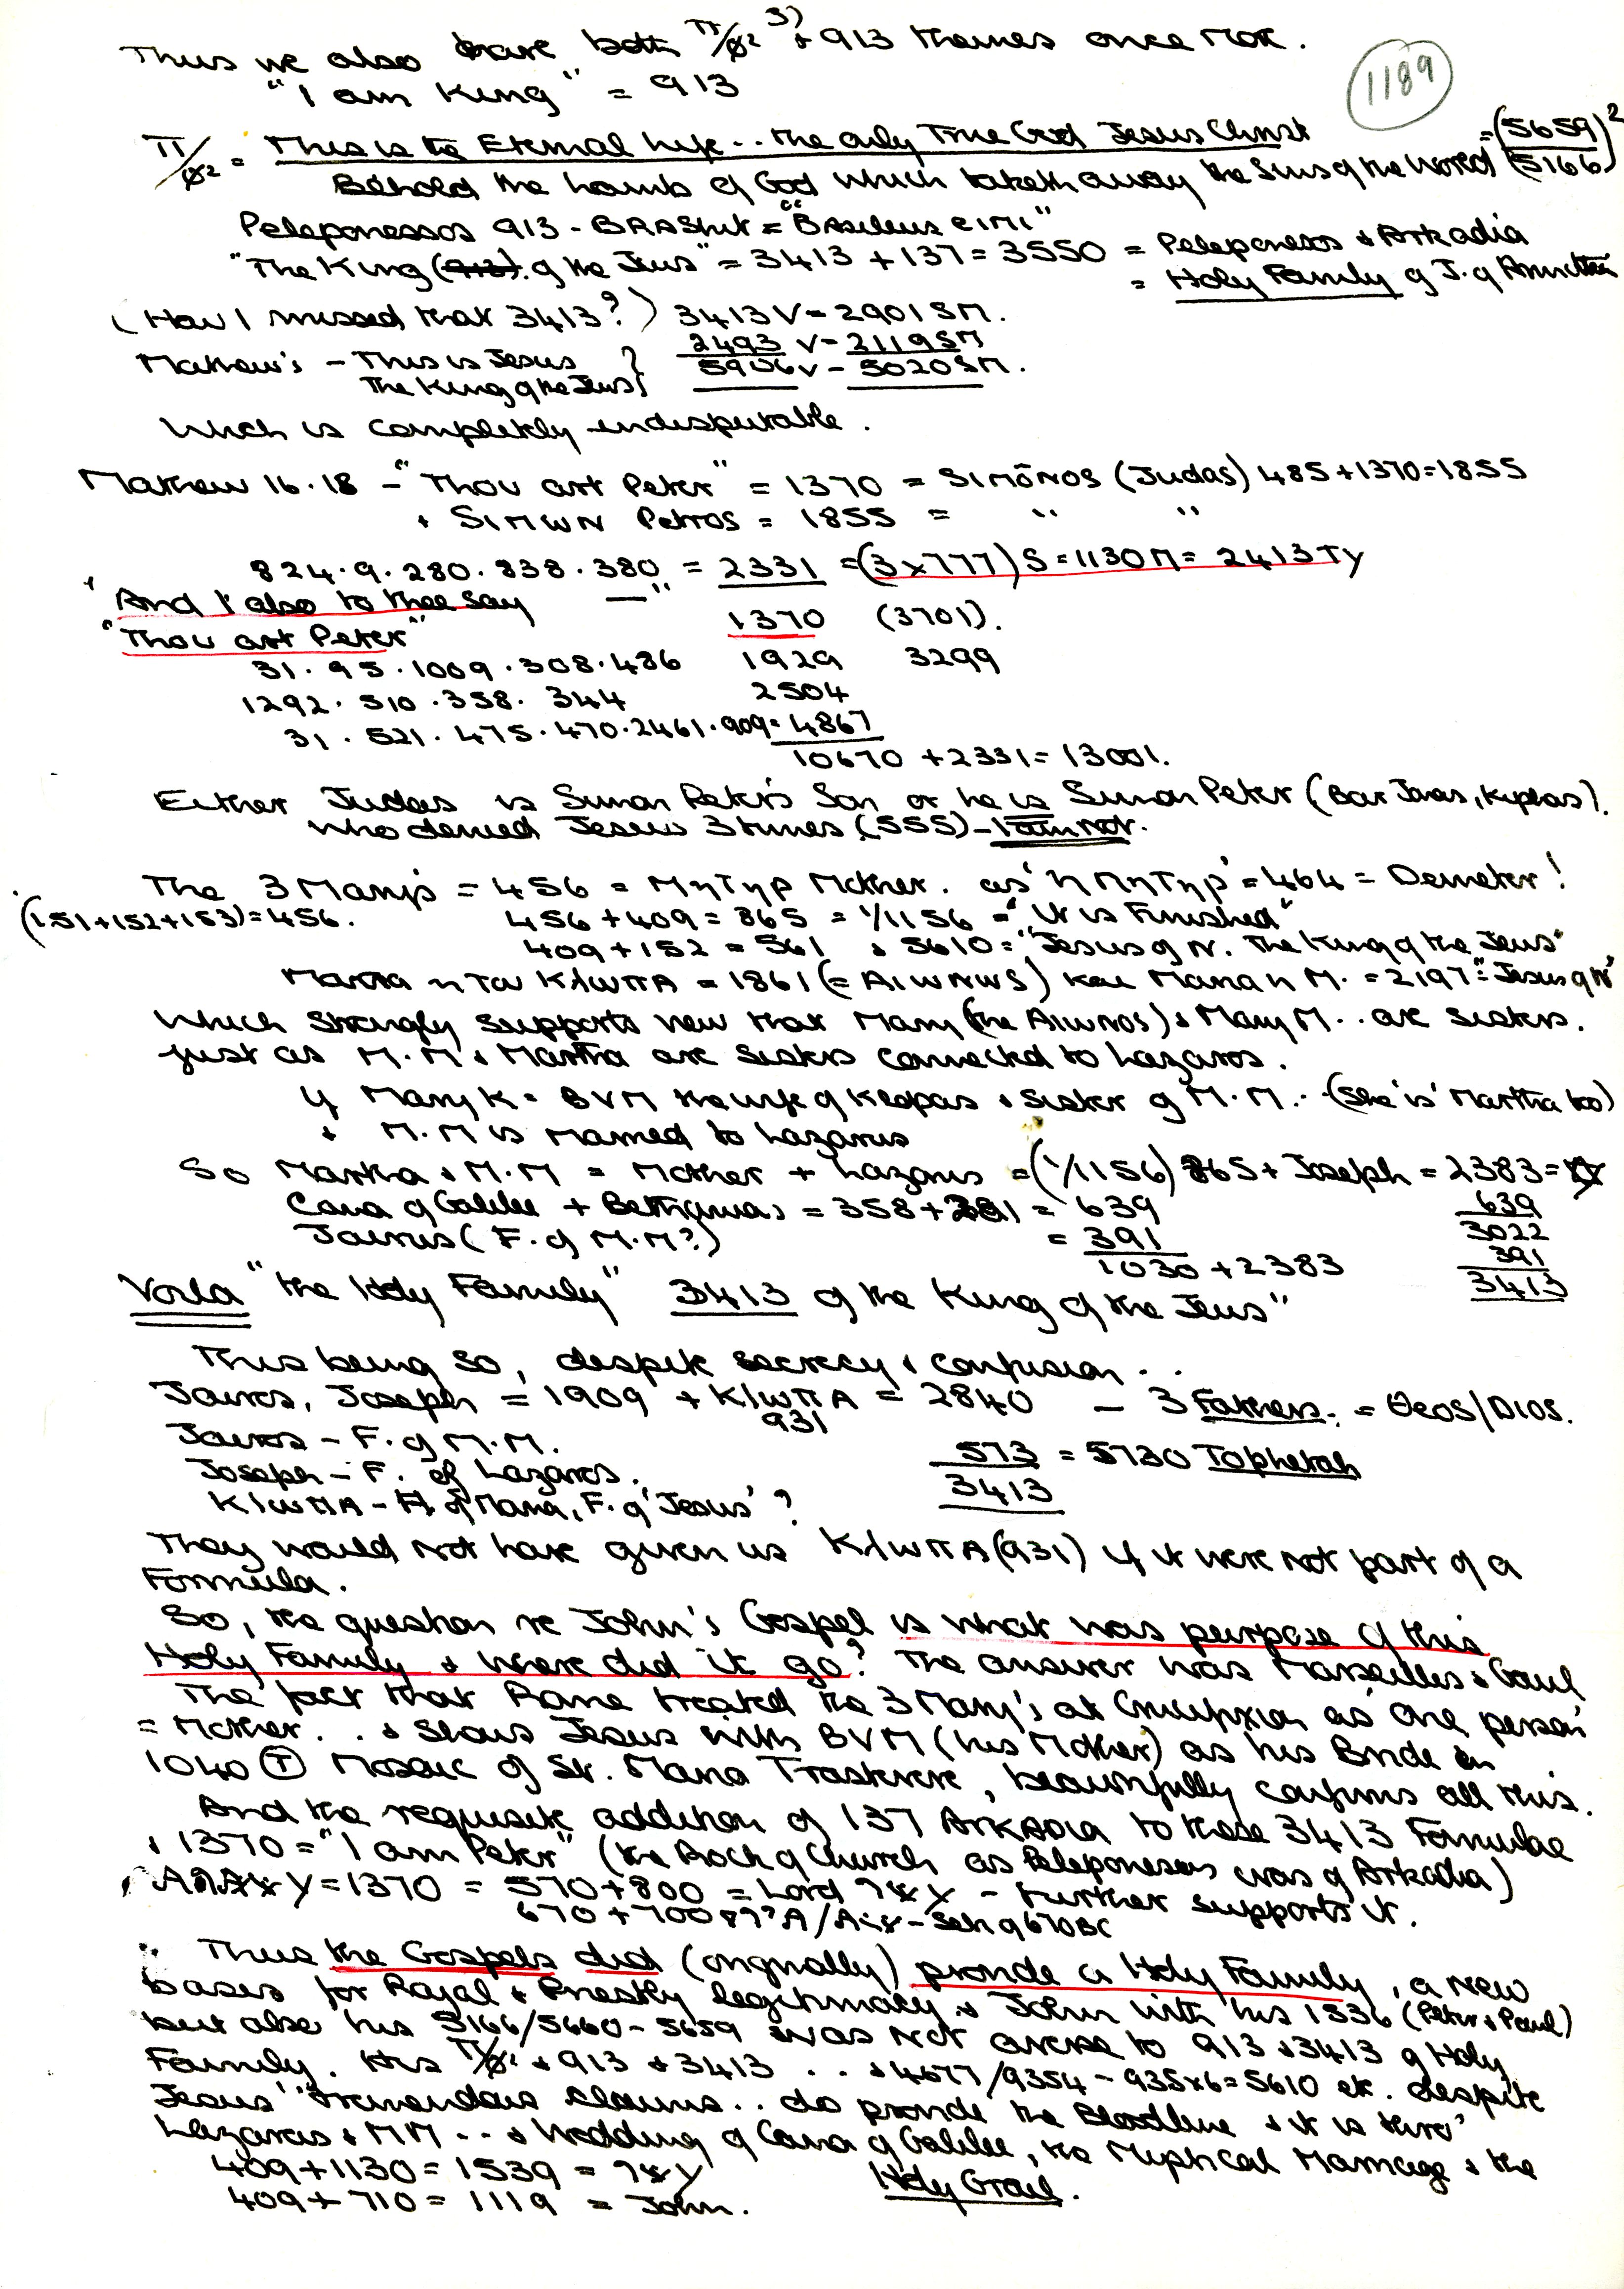 Thus we also have both π/ø² 3) + 913 themes once more.
"I am King" = 913
1189
π/ø² = This is the Eternal life .. the only True God Jesus Christ = (5659)²
Behold the Lamb of God which taketh away the sins of the World (5166)
Peleponessos 913 - BRAShit = "Basileus eimi"
"The King (913) of the Jews" = 3413 + 137 = 3550 = Peleponesos & Arkadia
= Holy Family of J. of
(How I missed that 3413?) 3413 V - 2901 SM.
Mathew's - This is Jesus } 2493 V - 2119 SM
The King of the Jews } 5906 V - 5020 SM.
Which is completely indisputable.
Mathew 16.18 - "Thou art Peter" = 1370 = Simōnos (Judas) 485 + 1370 = 1855
+ Simwn Petros = 1855 = " "
824 . 9 . 280 . 838 . 380 = 2331 = (3 x 777) S = 1130 M = 2413 Ty
"And I also to thee say — "
"Thou art Peter" 1370 (3701).
31 . 95 . 1009 . 308 . 486 1929 3299
1292 . 510 . 358 . 344 2504
31 . 521 . 475 . 470 . 2461 . 909 = 4867
10670 + 2331 = 13001.
Either Judas is Simon Peter's Son or he is Simon Peter (Bar Jonas, Kyphas).
who denied Jesus 3 times (555) - I am not.
The 3 Mary's = 456 = MηTηρ Mother. as 'η MηTηρ' = 464 = Demeter!
(151+152+153) = 456. 456 + 409 = 865 = 1/1156 = "It is Finished"
409 + 152 = 561 & 5610 = "Jesus of N. The King of the Jews"
Maria η Tou KλωπA = 1861 (= AIWNWS) Kai Maria η M. = 2197 = "Jesus of N"
Which strongly supports view that Mary (the Aiwnos) & Mary M .. are sisters.
just as M.M & Martha are sisters connected to Lazaros.
If Mary K = BVM the wife of Kleopas & sister of M.M. - (She 'is' Martha too)
& M.M is married to Lazarus
So Martha & M.M = Mother + Lazarus = (1/1156) 865 + Joseph = 2383 =
Cana of Galilee + Bethania = 358 + 281 = 639 639
Jairus (F. of M.M?) = 391 3022
1030 + 2383 391
Voila "the Holy Family" 3413 of the King of the Jews" 3413
This being so, despite secrecy & confusion ..
Jairos, Joseph = 1909 + KλωπA = 2840 - 3 Fathers. = θeos/Dios.
931
Jairos - F. of M.M.
Joseph - F. of Lazaros. 573 = 5730 Tophetah
KλωπA - H. of Maria, F. of 'Jesus'? 3413
They would not have given us KλωπA (931) if it were not part of a
Formula.
So, the question re John's Gospel is what was purpose of this
Holy Family & where did it go? The answer was Marseilles & Gaul
The fact that Rome treated the 3 Mary's at Crucifixion as one person
= Mother .. & shows Jesus with BVM (his Mother) as his Bride in
1040 (T) Mosaic of St. Maria Trastevere, beautifully confirms all this.
And the requisite addition of 137 ARKADIA to these 3413 Formulae
& 1370 = "I am Peter" (the Rock of Church as Peleponesus was of Arkadia)
= 1370 = 570 + 800 = Lord - Further supports it.
670 + 700 - Seh of 670 BC
Thus the Gospels did (originally) provide a Holy Family, a new
bases for Royal & Priestly legitimacy & John with his 1536 (Peter & Paul)
but also his 5166/5660 - 5659 was not averse to 913 & 3413 of Holy
Family. His π/ø² & 913 & 3413 .. & 4677/9354 - 935x6 = 5610 etc. despite
Jesus' "tremendous claims .. do provide the Bloodline & it is thro'
Lazarus & MM .. & Wedding of Cana of Galilee, the Mystical Marriage & the
409 + 1130 = 1539 = Holy Grail.
409 + 710 = 1119 = John.